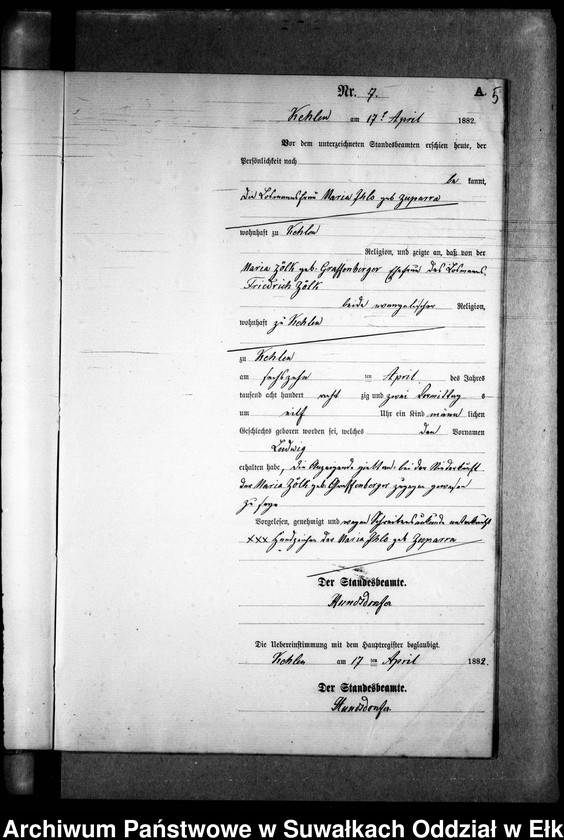 Nr. 7.
A.
5
Kehlen am 17t April 1882.
Vor dem unterzeichneten Standesbeamten erschien heute, der
Persönlichkeit nach
be kannt,
die Losmannsfrau Maria Ihlo geb Zuparra
wohnhaft zu Kehlen
Religion, und zeigte an, daß von der
Maria Zölk geb. Graffenberger Ehefrau des Losmanns
Friedrich Zölk
beide evangelischer Religion,
wohnhaft zu Kehlen
zu Kehlen
am sechszehn ten April des Jahres
tausend acht hundert acht zig und zwei Vormittag s
um eilf Uhr ein Kind männ lichen
Geschlechts geboren worden sei, welches den Vornamen
Ludwig
erhalten habe, die Anzeigende bei der Niederkunft
der Maria Zölk geb. Graffenberger zugegen gewesen
zu seyn
Vorgelesen, genehmigt und wegen Schreibensunkunde unterkreuzt
xxx Handzeichen der Maria Ihlo geb Zuparra
Der Standesbeamte.
Die Uebereinstimmung mit dem Hauptregister beglaubigt.
Kehlen am 17 ten April 1882.
Der Standesbeamte.
Archiwum Państwowe w Suwałkach Oddział w Ełk